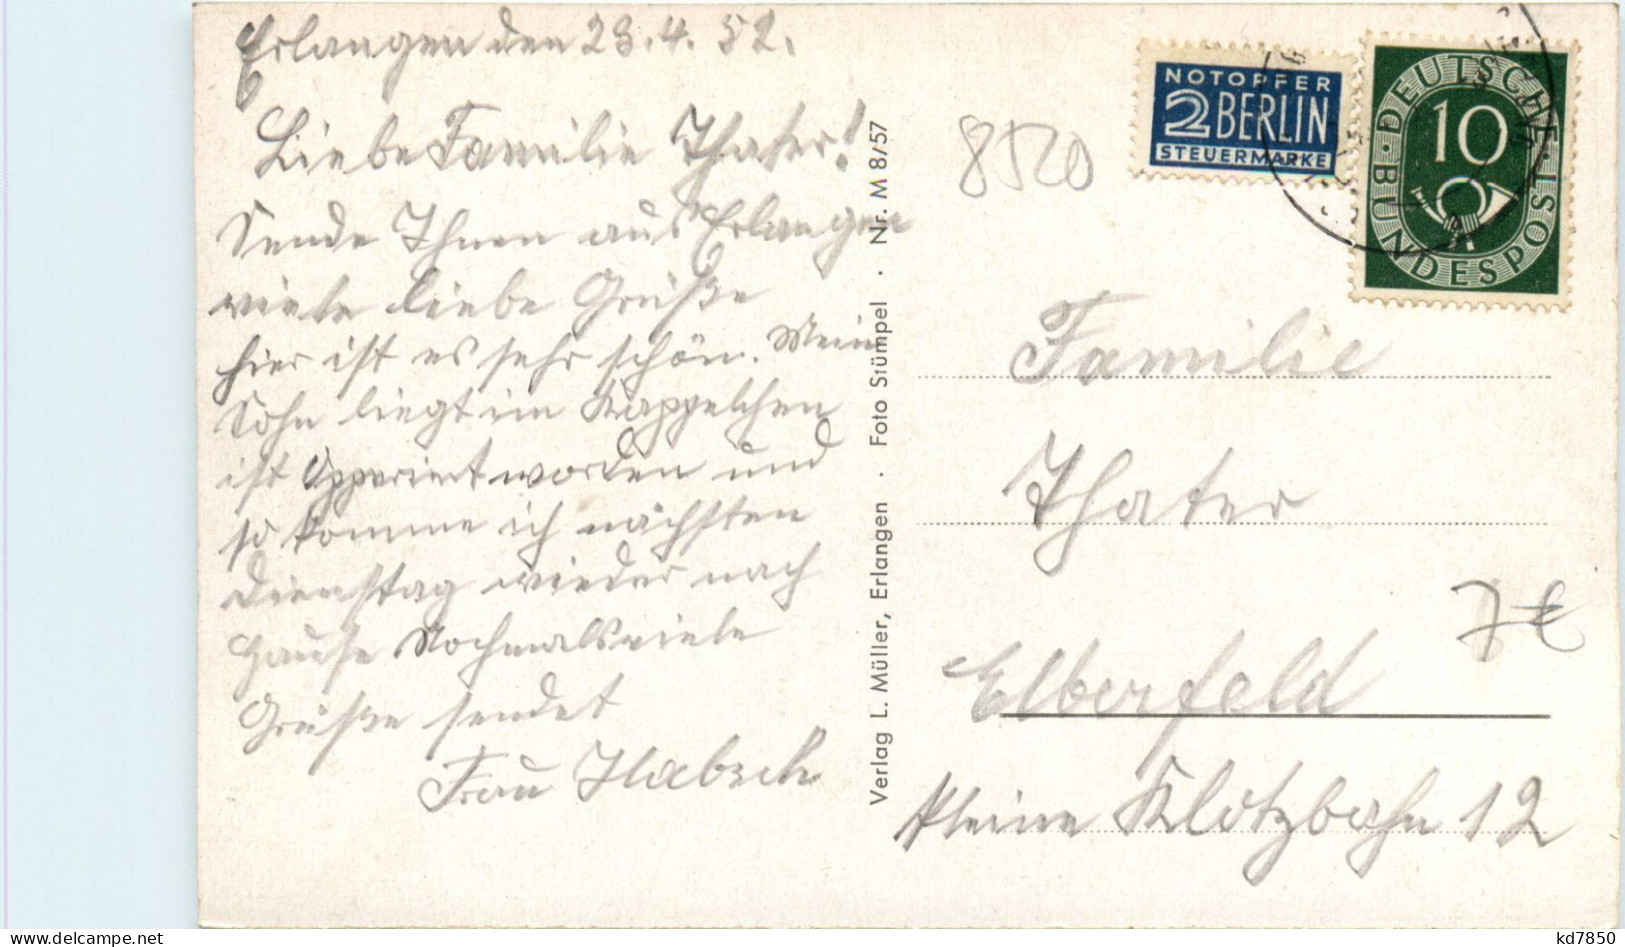 Erlangen den 23.4.52.
Liebe Familie Thater!
Sende Ihnen aus Erlangen
viele liebe Grüße
hier ist es sehr schön. Mein
Sohn liegt im Kappelchen
ist Opperiert worden und
so komme ich nächsten
Dienstag wieder nach
Hause Nochmals viele
Grüße sendet
Frau
Verlag L. Müller, Erlangen · Foto Stümpel · Nr. M 8/57
8520
NOTOPFER
2 BERLIN
STEUERMARKE
DEUTSCHE BUNDESPOST
10
Familie
Thater
Elberfeld
Kleine Klotzbahn 12
7€
kd7850